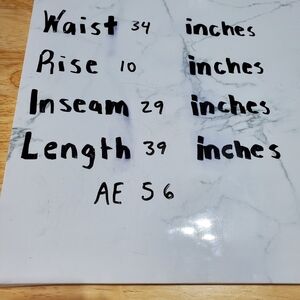 Waist 34 inches
Rise 10 inches
Inseam 29 inches
Length 39 inches
AE 56